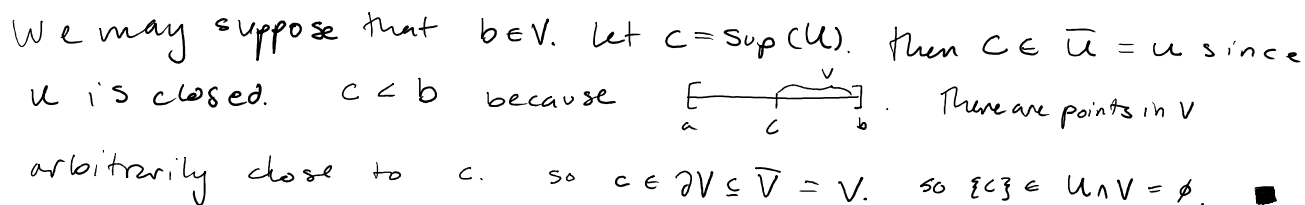 We may suppose that b ∈ V. Let c = Sup(U). then c ∈ U̅ = U since
U is closed. c < b because [ V ] a c b . There are points in V
arbitrarily close to c. so c ∈ ∂V ⊆ V̅ = V. so {c} ∈ U ∩ V = ∅. ■